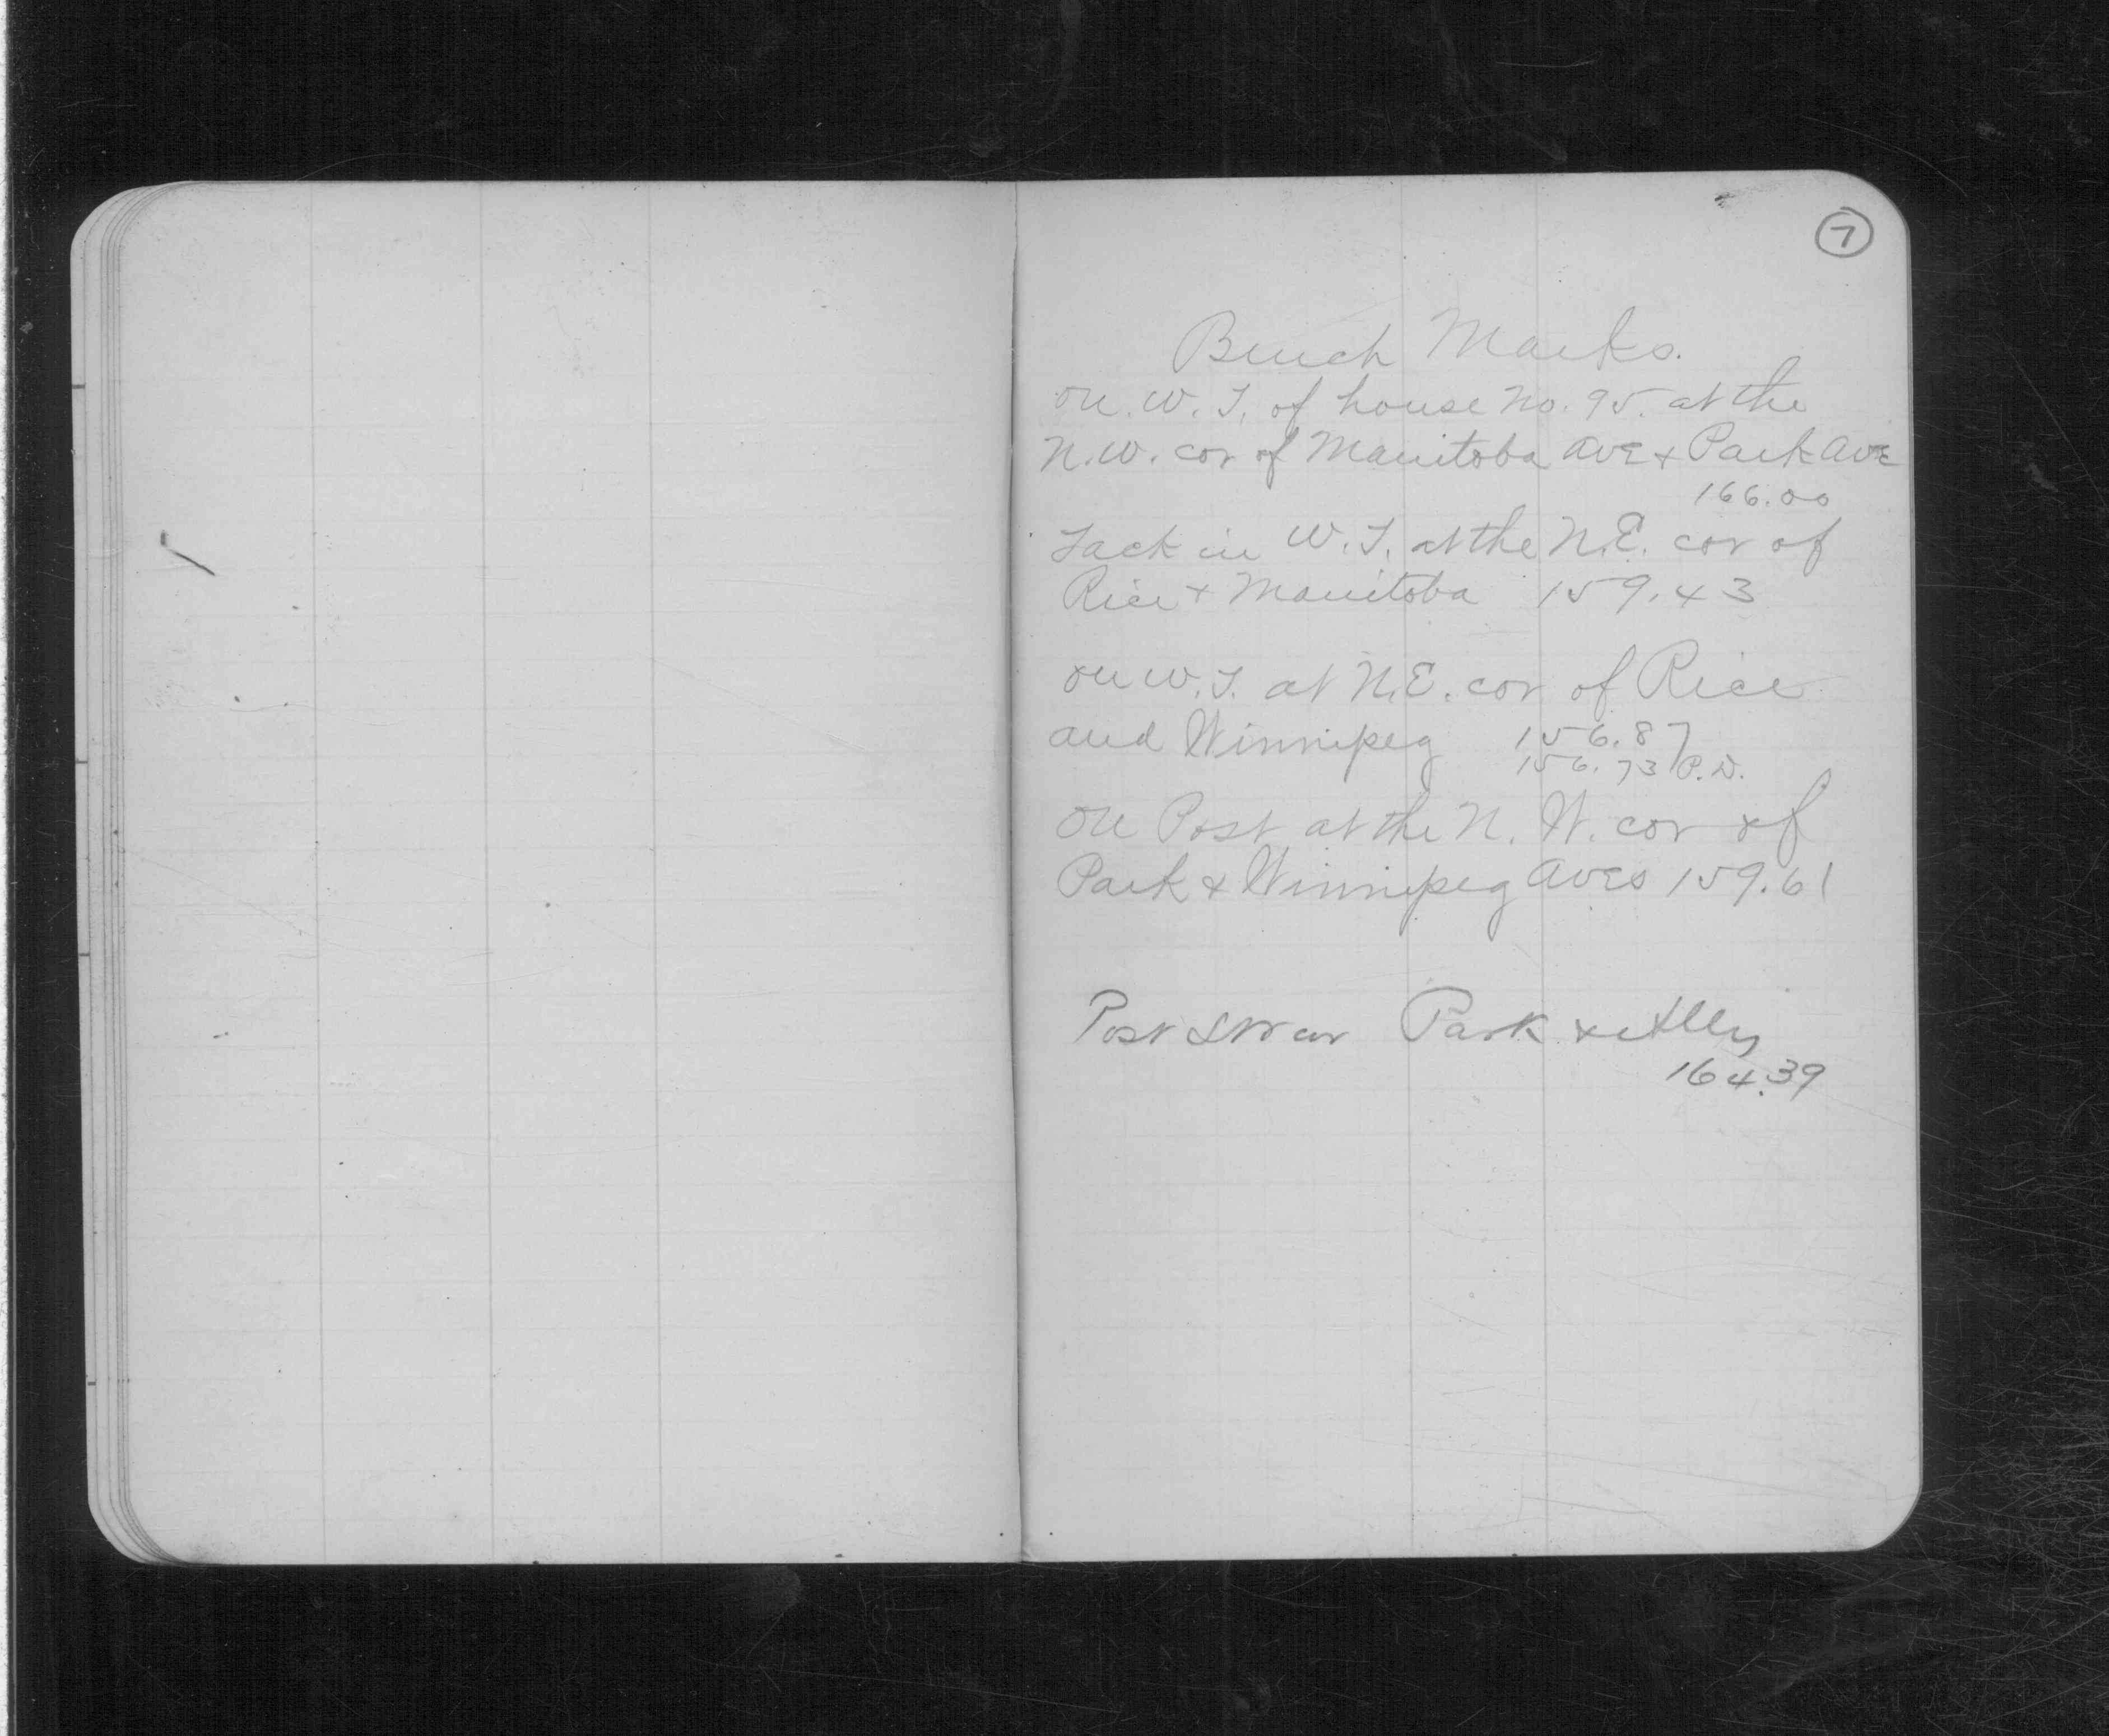 7
Bench Marks.
on W. T. of house No. 95. at the
N.W. cor of Manitoba Ave + Park Ave
166.00
Tack in W. T. at the N.E. cor of
Rice + Manitoba 159.43
on W. T. at N.E. cor of Rice
and Winnipeg 156.87
156.73 P.D.
on Post at the N. W. cor of
Park & Winnipeg Aves 159.61
Post SW cor Park & Alley
164.39